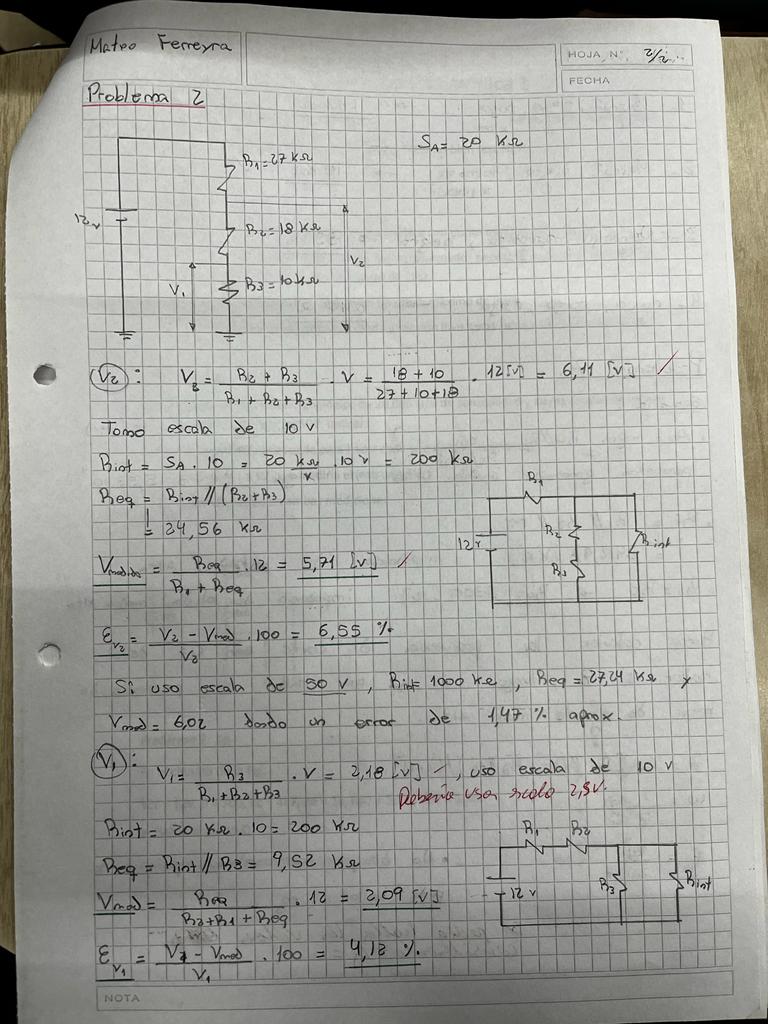 Mateo Ferreyra
HOJA N° 2/2
FECHA
Problema 2
S_A = 20 KΩ
R1 = 27 KΩ
12v
R2 = 18 KΩ
V2
V1
R3 = 10 KΩ
V2 : V_B = (R2 + R3)/(R1 + R2 + R3) . V = (18 + 10)/(27+10+18) . 12[V] = 6,11 [V]
Tomo escala de 10 v
Rint = S_A . 10 = 20 KΩ/V . 10 v = 200 KΩ
Req = Rint // (R2+R3)
= 24,56 KΩ
R1
12v
R2
Rint
R3
Vmedido = Req/(R1 + Req) . 12 = 5,71 [V]
E_V2 = (V2 - Vmed)/V2 . 100 = 6,55 %
Si uso escala de 50 V, Rint = 1000 KΩ, Req = 27,24 KΩ y
Vmed = 6,02 dando un error de 1,47 % aprox.
V1 :
V1 = R3/(R1+R2+R3) . V = 2,18 [V], uso escala de 10 v
Debería usar escala 2,5v.
Rint = 20 KΩ . 10 = 200 KΩ
Req = Rint // R3 = 9,52 KΩ
R1 R2
12 v
R3
Rint
Vmed = Req/(R2+R1 + Req) . 12 = 2,09 [V]
E_V1 = (V1 - Vmed)/V1 . 100 = 4,12 %
NOTA